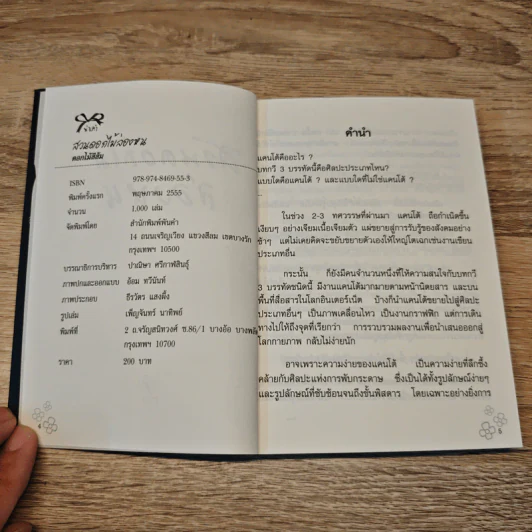 พันคำ
สวนดอกไม้สองชน
ดอกไม้สีส้ม
ISBN 978-974-8469-55-3
พิมพ์ครั้งแรก พฤษภาคม 2555
จำนวน 1,000 เล่ม
จัดพิมพ์โดย สำนักพิมพ์พันคำ
14 ถนนเจริญเวียง แขวงสีลม เขตบางรัก
กรุงเทพฯ 10500
บรรณาธิการบริหาร ปาณิษา ศรีกาฬสินธุ์
ภาพปกและออกแบบ อ้อม ทวีนันท์
ภาพประกอบ ธีรวัตร แสงผึ้ง
รูปเล่ม เพ็ญจันทร์ นาทิพย์
พิมพ์ที่ 2 ถ.จรัญสนิทวงศ์ ซ.86/1 บางอ้อ บางพลัด
กรุงเทพฯ 10700
ราคา 200 บาท
4
คำนำ
แคนโต้คืออะไร ?
บทกวี 3 บรรทัดนี้คือศิลปะประเภทไหน?
แบบใดคือแคนโต้ ? และแบบใดที่ไม่ใช่แคนโต้ ?
ในช่วง 2-3 ทศวรรษที่ผ่านมา แคนโต้ ถือกำเนิดขึ้น
เงียบๆ อย่างเจียมเนื้อเจียมตัว แผ่ขยายสู่การรับรู้ของสังคมอย่าง
ช้าๆ แต่ไม่เคยคิดจะขยับขยายตัวเองให้ใหญ่โตเฉกเช่นงานเขียน
ประเภทอื่น
กระนั้น ก็ยังมีคนจำนวนหนึ่งที่ให้ความสนใจกับบทกวี
3 บรรทัดชนิดนี้ มีงานแคนโต้มากมายตามหน้านิตยสาร และบน
พื้นที่สื่อสารในโลกอินเตอร์เน็ต บ้างก็นำแคนโต้ขยายไปสู่ศิลปะ
ประเภทอื่นๆ เป็นภาพเคลื่อนไหว เป็นงานกราฟฟิก แต่การเดิน
ทางไปให้ถึงจุดที่เรียกว่า การรวบรวมผลงานเพื่อนำเสนอออกสู่
โลกกายภาพ กลับไม่ง่ายนัก
อาจเพราะความง่ายของแคนโต้ เป็นความง่ายที่ลึกซึ้ง
คล้ายกับศิลปะแห่งการพับกระดาษ ซึ่งเป็นได้ทั้งรูปลักษณ์ง่ายๆ
และรูปลักษณ์ที่ซับซ้อนจนถึงขั้นพิสดาร โดยเฉพาะอย่างยิ่งการ
5